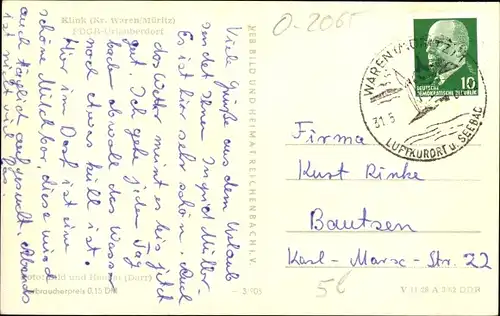 Klink (Kr. Waren/Müritz)
FDGB-Urlauberdorf
Viele Grüße aus dem Urlaub
sendet Ihnen Ingrid Müller.
Es ist hier sehr schön. Auch
das Wetter meint es bis jetzt
gut. Ich gehe jeden Tag
baden obwohl das Wasser
noch etwas kühl ist.
Hier im Dorf ist eine
schöne Milchbar, diese wird
auch täglich aufgesucht. Abends
ist nicht viel los.
BILD UND HEIMAT REICHENBACH I. V.
O-2065
WAREN (MÜRITZ)
31.5
LUFTKURORT u. SEEBAD
10
DEUTSCHE
DEMOKRATISCHE REPUBLIK
Firma
Kurt Rinke
Bautsen
Karl-Marx-Str. 22
Foto: Bild und Heimat (Darr)
Verbraucherpreis 0,15 DM
5
V 11 28 A 3/62 DDR